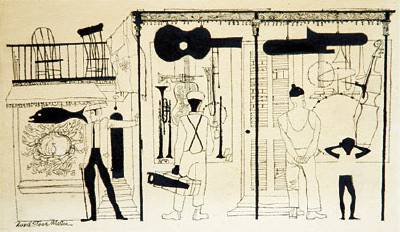 David Stone Martin